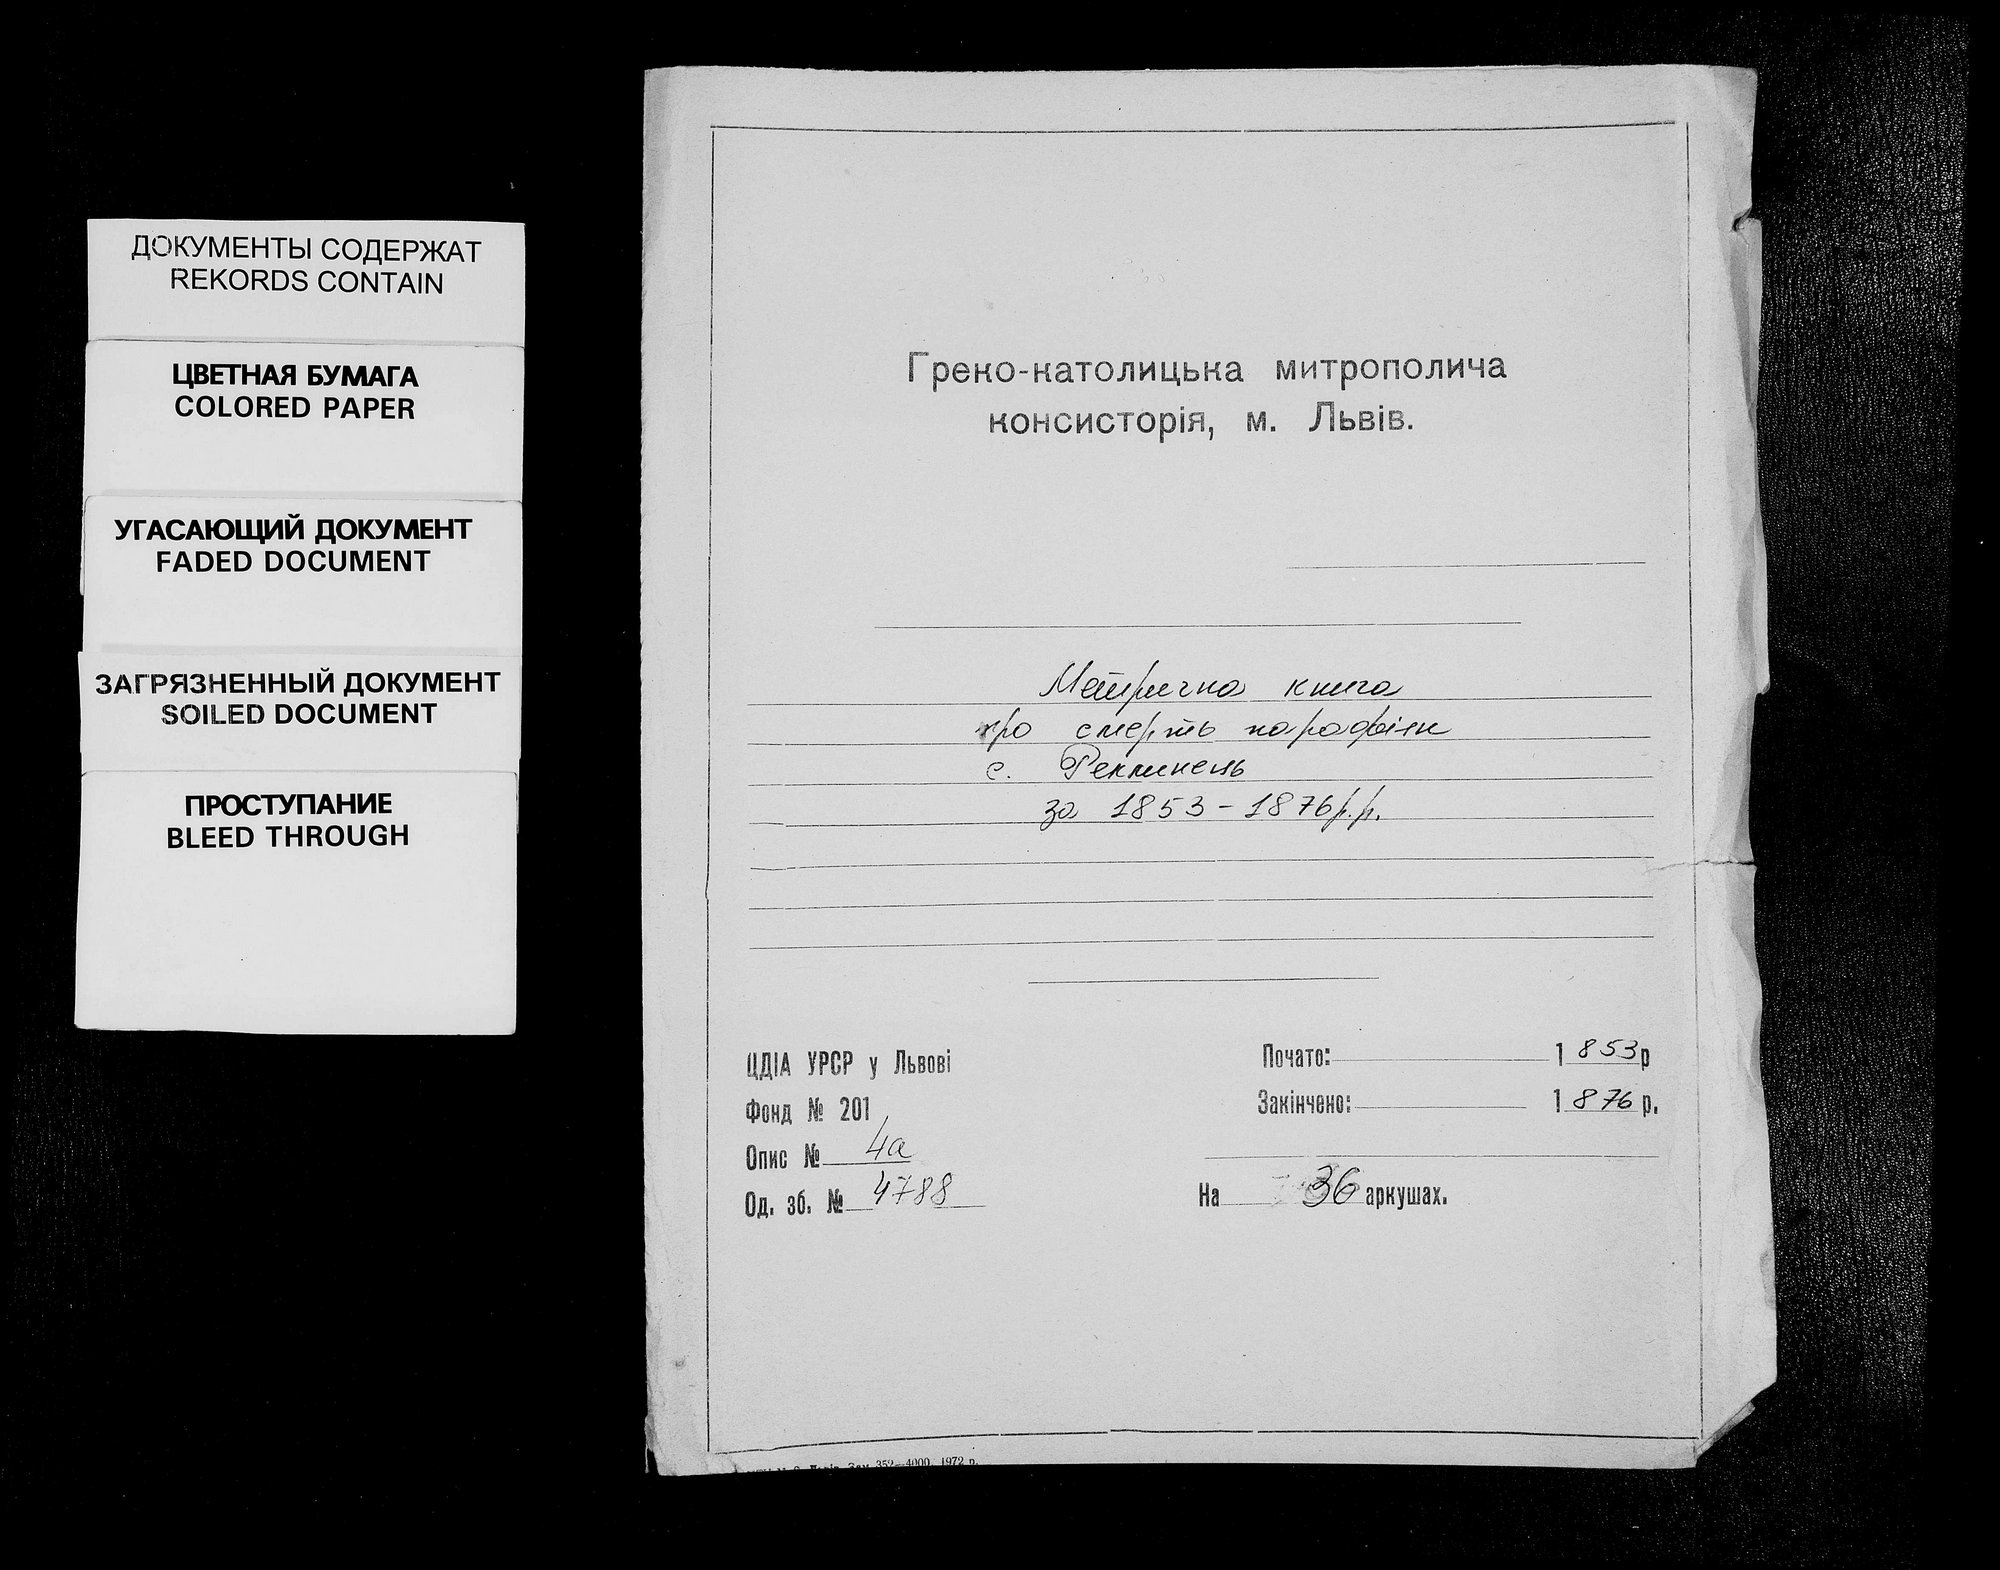 ДОКУМЕНТЫ СОДЕРЖАТ
REKORDS CONTAIN
ЦВЕТНАЯ БУМАГА
COLORED PAPER
УГАСАЮЩИЙ ДОКУМЕНТ
FADED DOCUMENT
ЗАГРЯЗНЕННЫЙ ДОКУМЕНТ
SOILED DOCUMENT
ПРОСТУПАНИЕ
BLEED THROUGH
Греко-католицька митрополича
консисторія, м. Львів.
Метрична книга
про смерть парафіян
с. Реклинець
за 1853-1876р.р.
ЦДІА УРСР у Львові
Фонд № 201
Опис № 4а
Од. зб. № 4788
Почато: 1853р
Закінчено: 1876 р.
На 36 аркушах.
Зам. 352—4000. 1972 р.